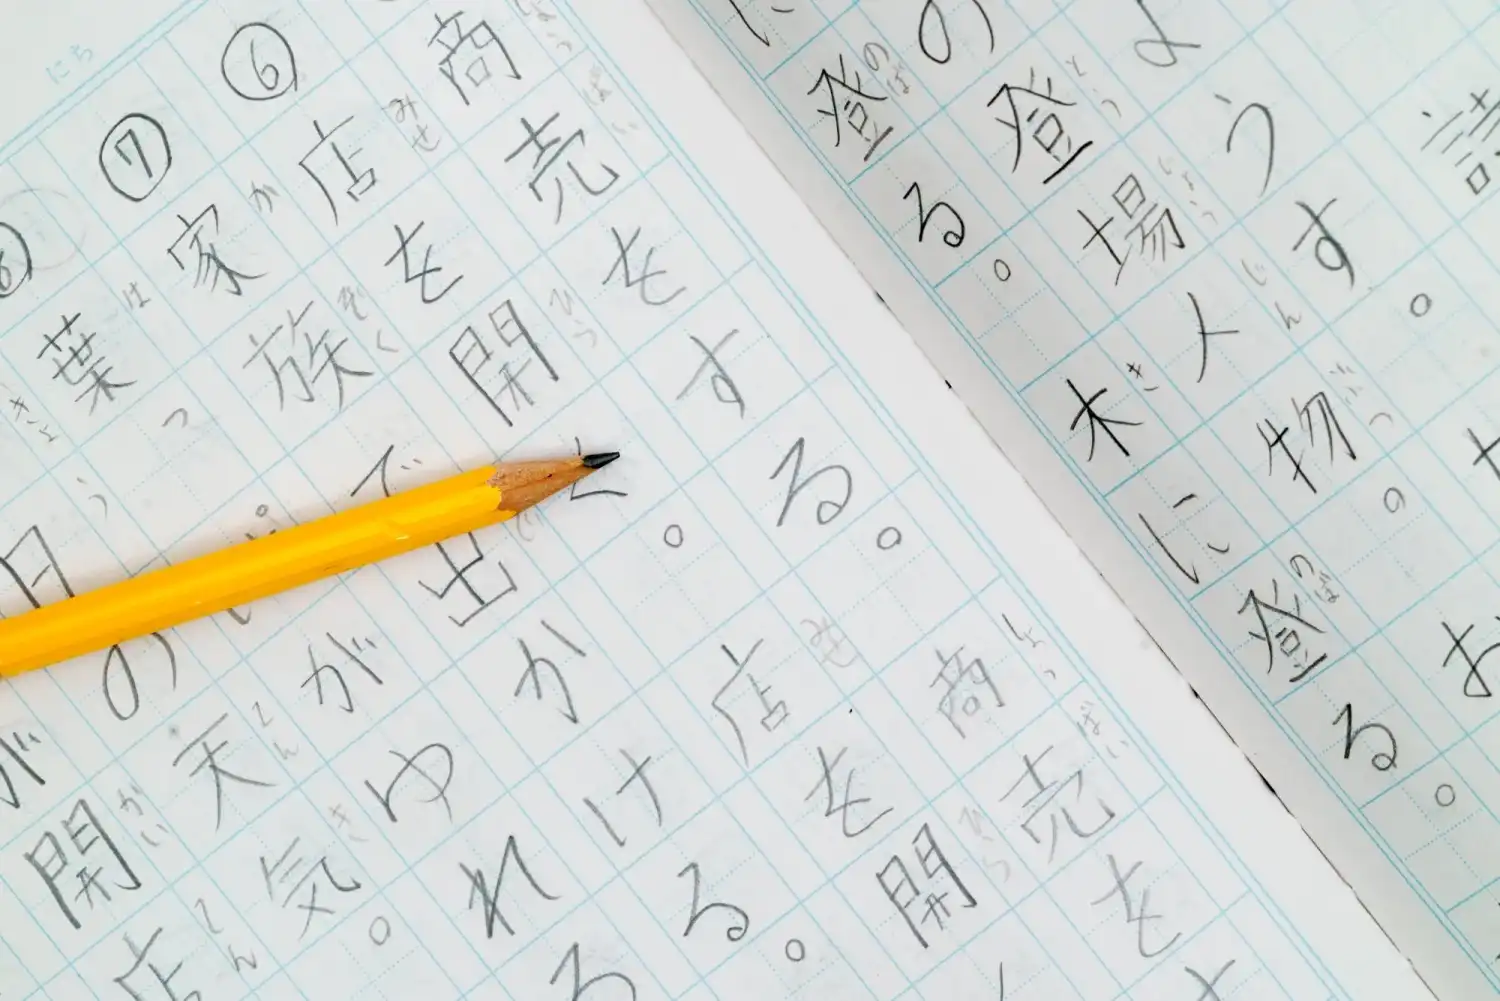 ようす。
の登場人物。
に登る。木に登る。
商売をする。商売を
⑥店を開く。店を開
⑦家族で出かける。
葉っぱがゆれる
日の天気。
が開店